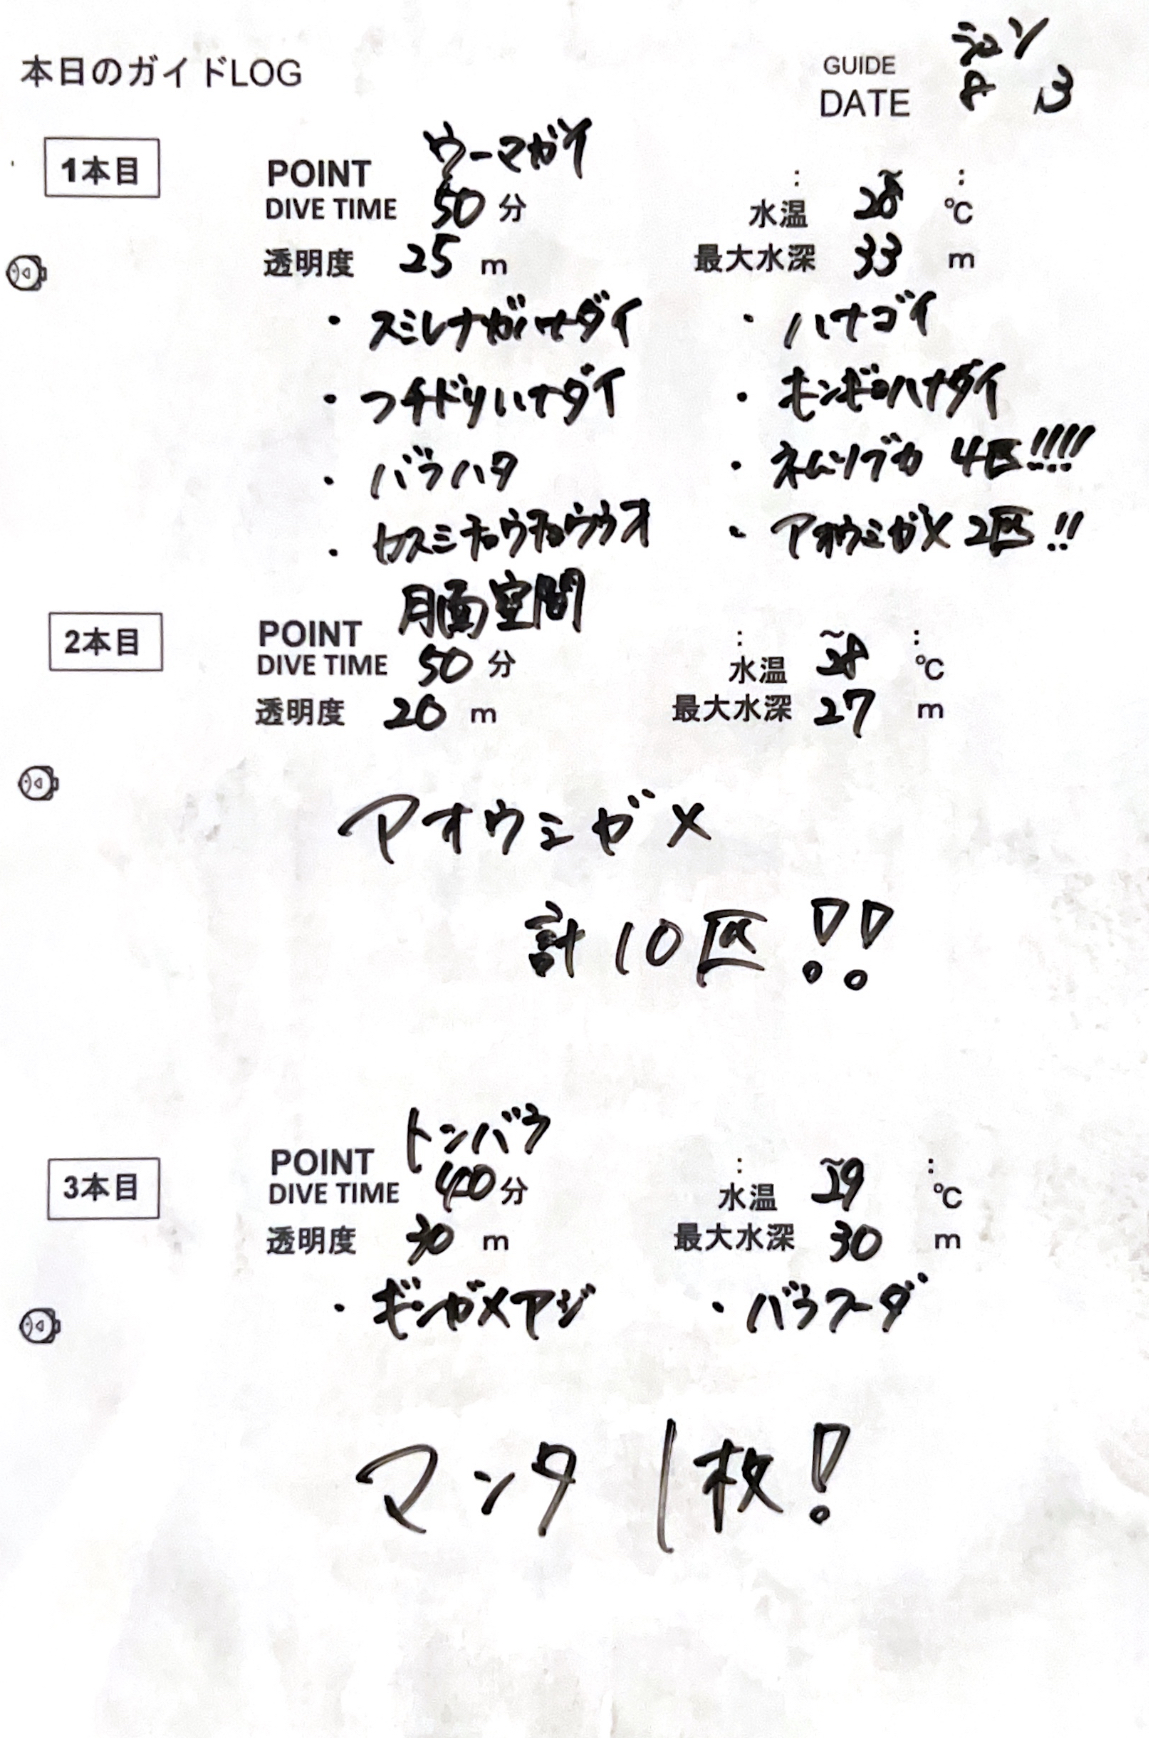 本日のガイドLOG
GUIDE シュン
DATE 8 13
1本目
POINT ウーマガイ
DIVE TIME 50 分
: ~ :
水温 28 ℃
透明度 25 m
最大水深 33 m
・スミレナガハナダイ ・ハナゴイ
・フチドリハナダイ ・キンギョハナダイ
・バラハタ ・ネムリブカ 4匹!!!!
・カスミチョウチョウウオ ・アオウミガメ 2匹!!
2本目
POINT 月面空間
DIVE TIME 50 分
: ~ :
水温 28 ℃
透明度 20 m
最大水深 27 m
アオウミガメ
計10匹!!
3本目
POINT トンバラ
DIVE TIME 40 分
: ~ :
水温 29 ℃
透明度 30 m
最大水深 30 m
・ギンガメアジ ・バラフエダ
マンタ 1枚!